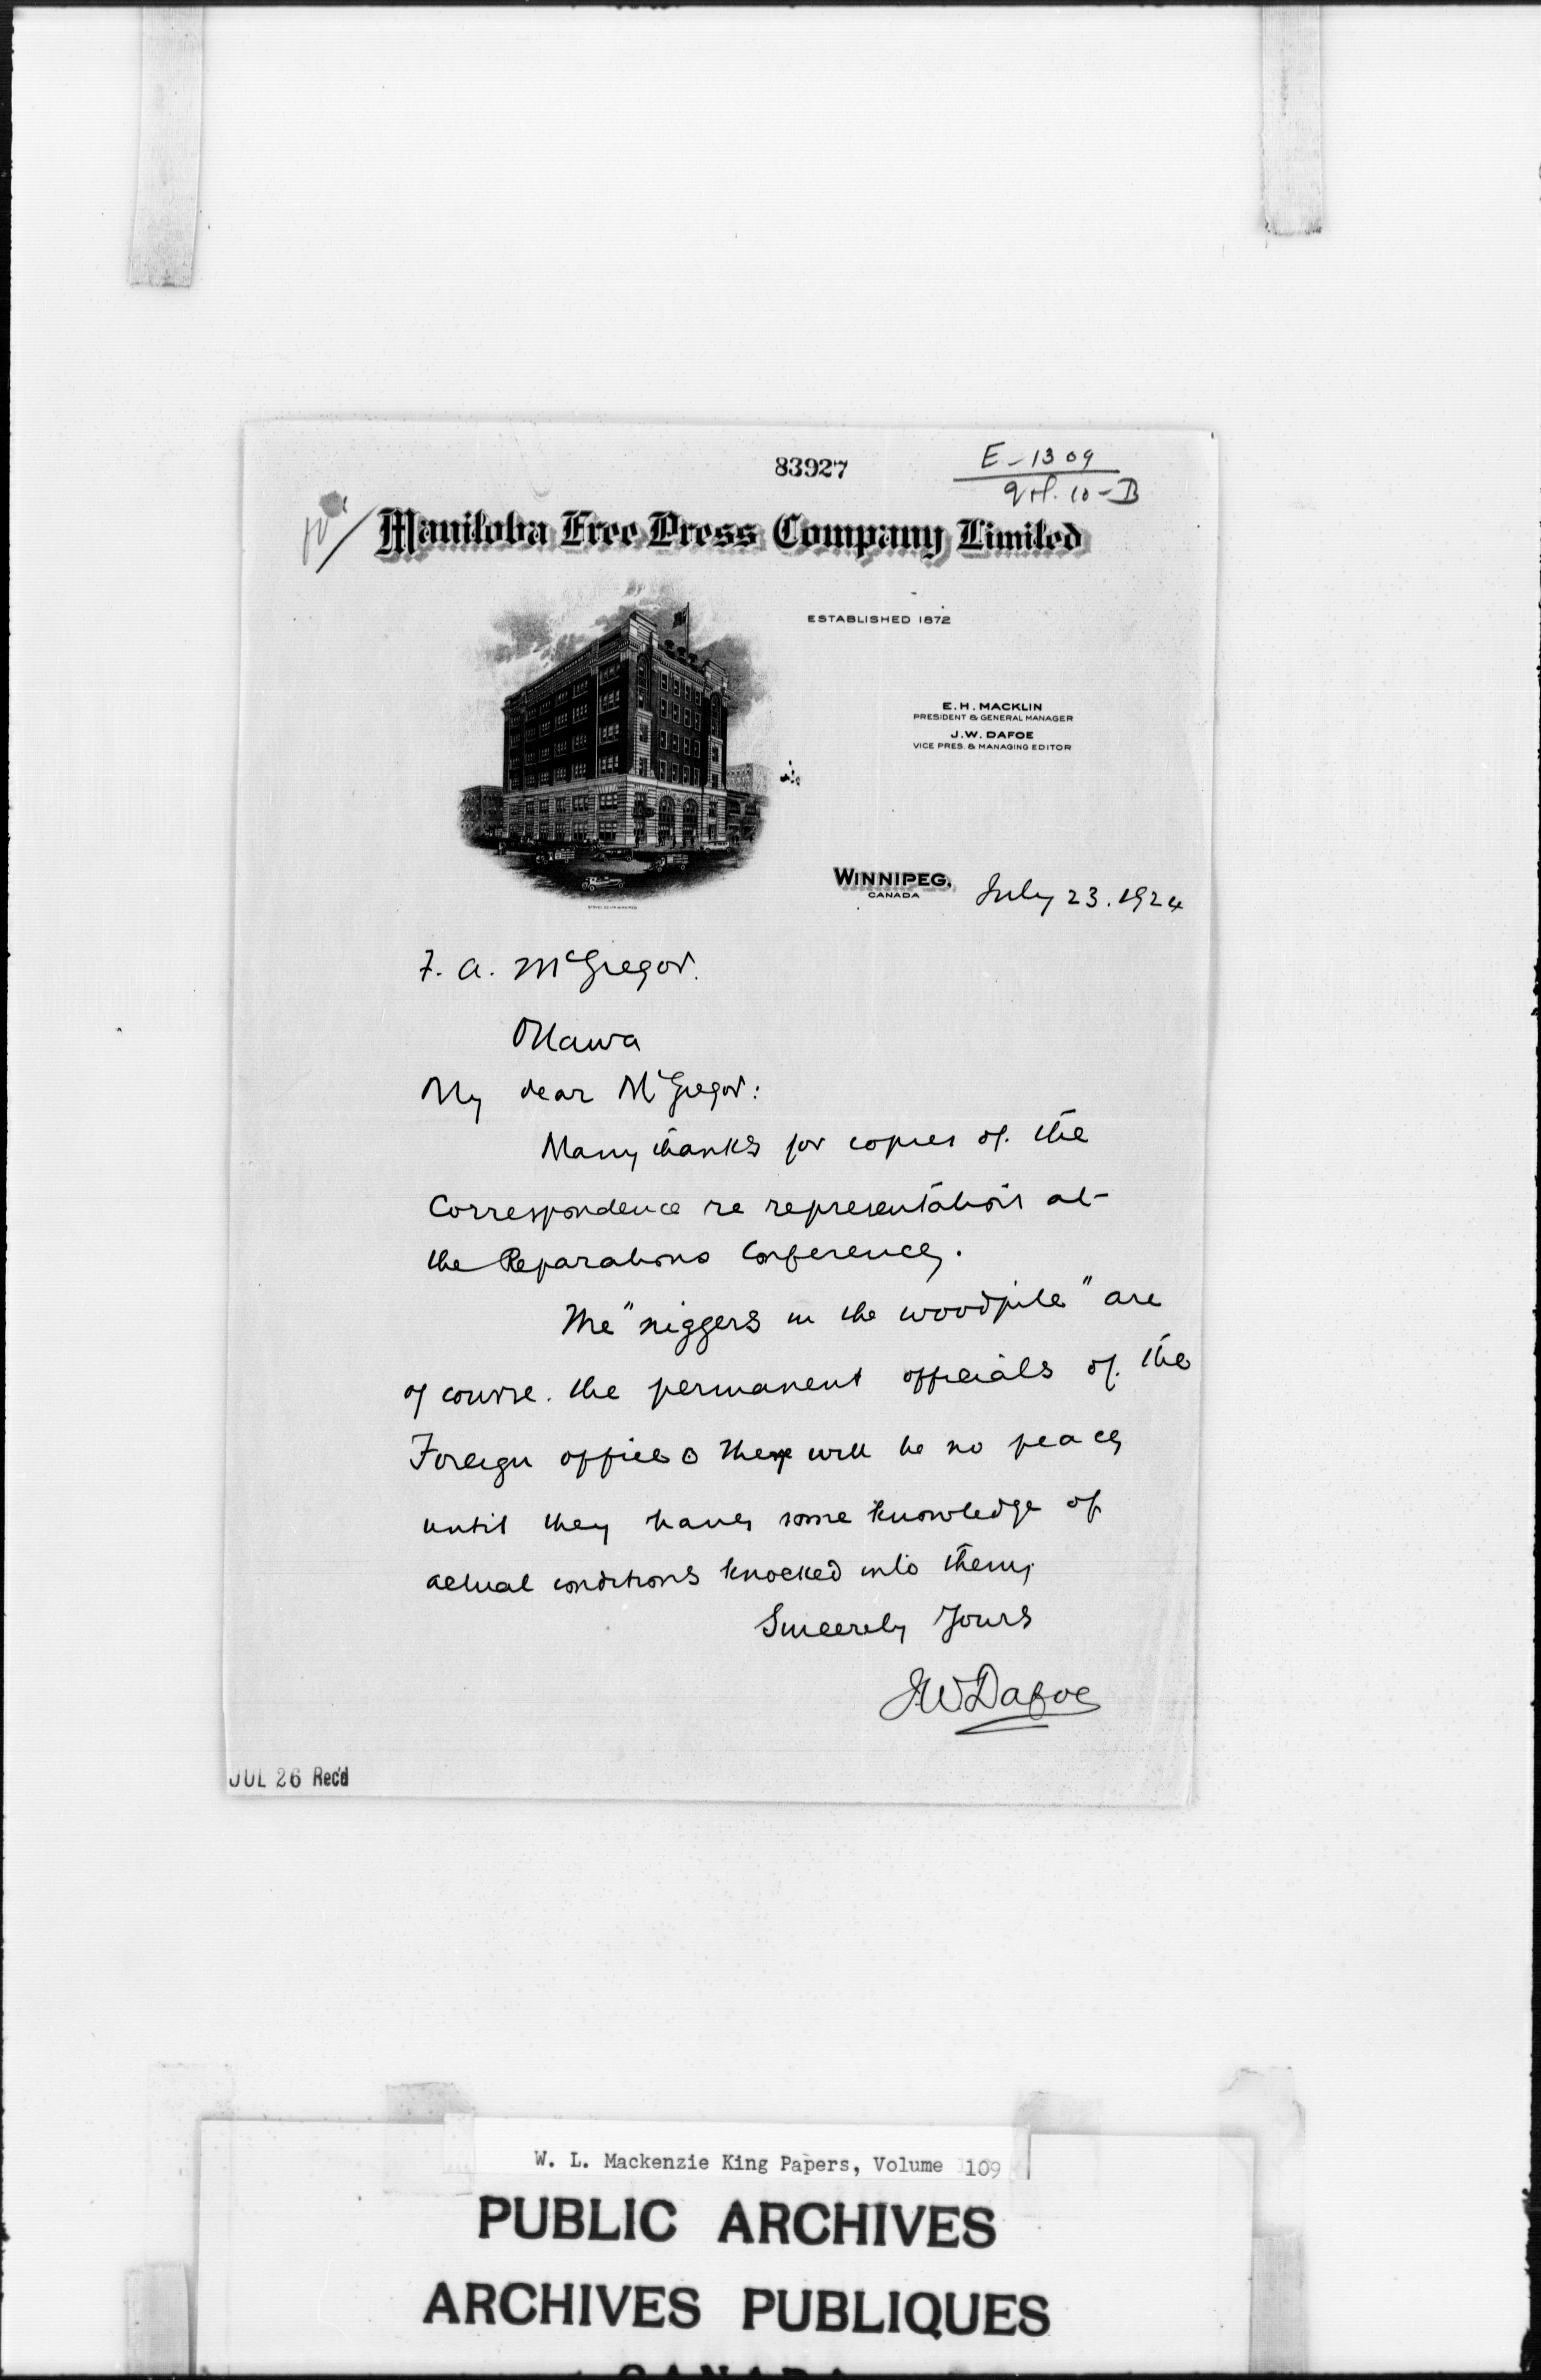 83927
E-1309
Manitoba Free Press Company Limited
ESTABLISHED 1872
E. H. MACKLIN
PRESIDENT & GENERAL MANAGER
J. W. DAFOE
VICE PRES. & MANAGING EDITOR
WINNIPEG,
CANADA
July 23. 1924
F. A. McGregor.
Ottawa
My dear McGregor:
Many thanks for copies of the
Correspondence re representations at
the Reparations Conference.
The "niggers in the woodpile" are
of course the permanent officials of the
Foreign office. There will be no peace
until they have some knowledge of
actual conditions knocked into them;
Sincerely Yours
J.W. Dafoe
JUL 26 Rec'd
W. L. Mackenzie King Papers, Volume 109
PUBLIC ARCHIVES
ARCHIVES PUBLIQUES
CANADA